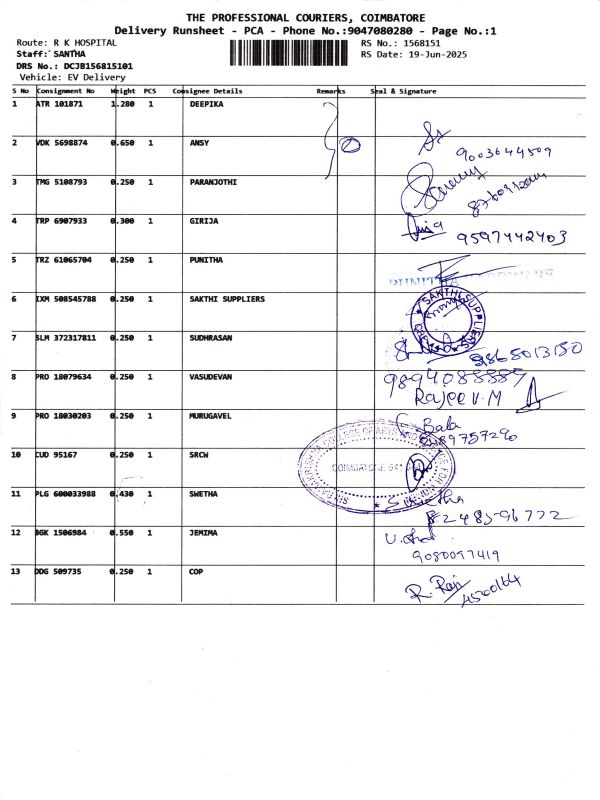 THE PROFESSIONAL COURIERS, COIMBATORE
Delivery Runsheet - PCA - Phone No.:9047080280 - Page No.:1
Route: R K HOSPITAL
RS No.: 1568151
Staff: SANTHA
RS Date: 19-Jun-2025
DRS No.: DCJB156815101
Vehicle: EV Delivery
S No Consignment No Weight PCS Consignee Details Remarks Seal & Signature
1 ATR 101871 1.280 1 DEEPIKA
2 VDK 5698874 0.650 1 ANSY
9003644509
3 TMG 5108793 0.250 1 PARANJOTHI
4 TRP 6907933 0.300 1 GIRIJA
9597442403
5 TRZ 61065704 0.250 1 PUNITHA
PUNITHA
6 IXM 508545788 0.250 1 SAKTHI SUPPLIERS
SAKTHI SUPPLIERS
7 SLM 372317811 0.250 1 SUDHRASAN
9865013150
8 PRO 18079634 0.250 1 VASUDEVAN
Rajee V.M
9 PRO 18030203 0.250 1 MURUGAVEL
Bala
10 CUD 95167 0.250 1 SRCW
COIMBATORE-641
11 PLG 600033988 0.430 1 SWETHA
Swetha
12 BGK 1506984 0.550 1 JEMIMA
9080097419
13 DDG 509735 0.250 1 COP
R. Raji